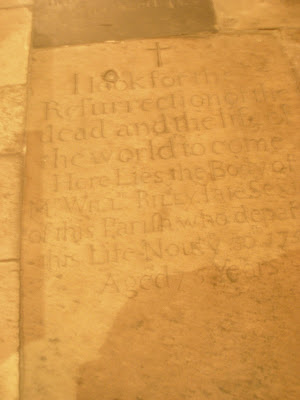 I look for the
Resurrection of the
dead and the life of
the world to come
Here Lies the Body of
Mr. Will. Riley, late
of this Parish who
this Life Nov
Aged Years